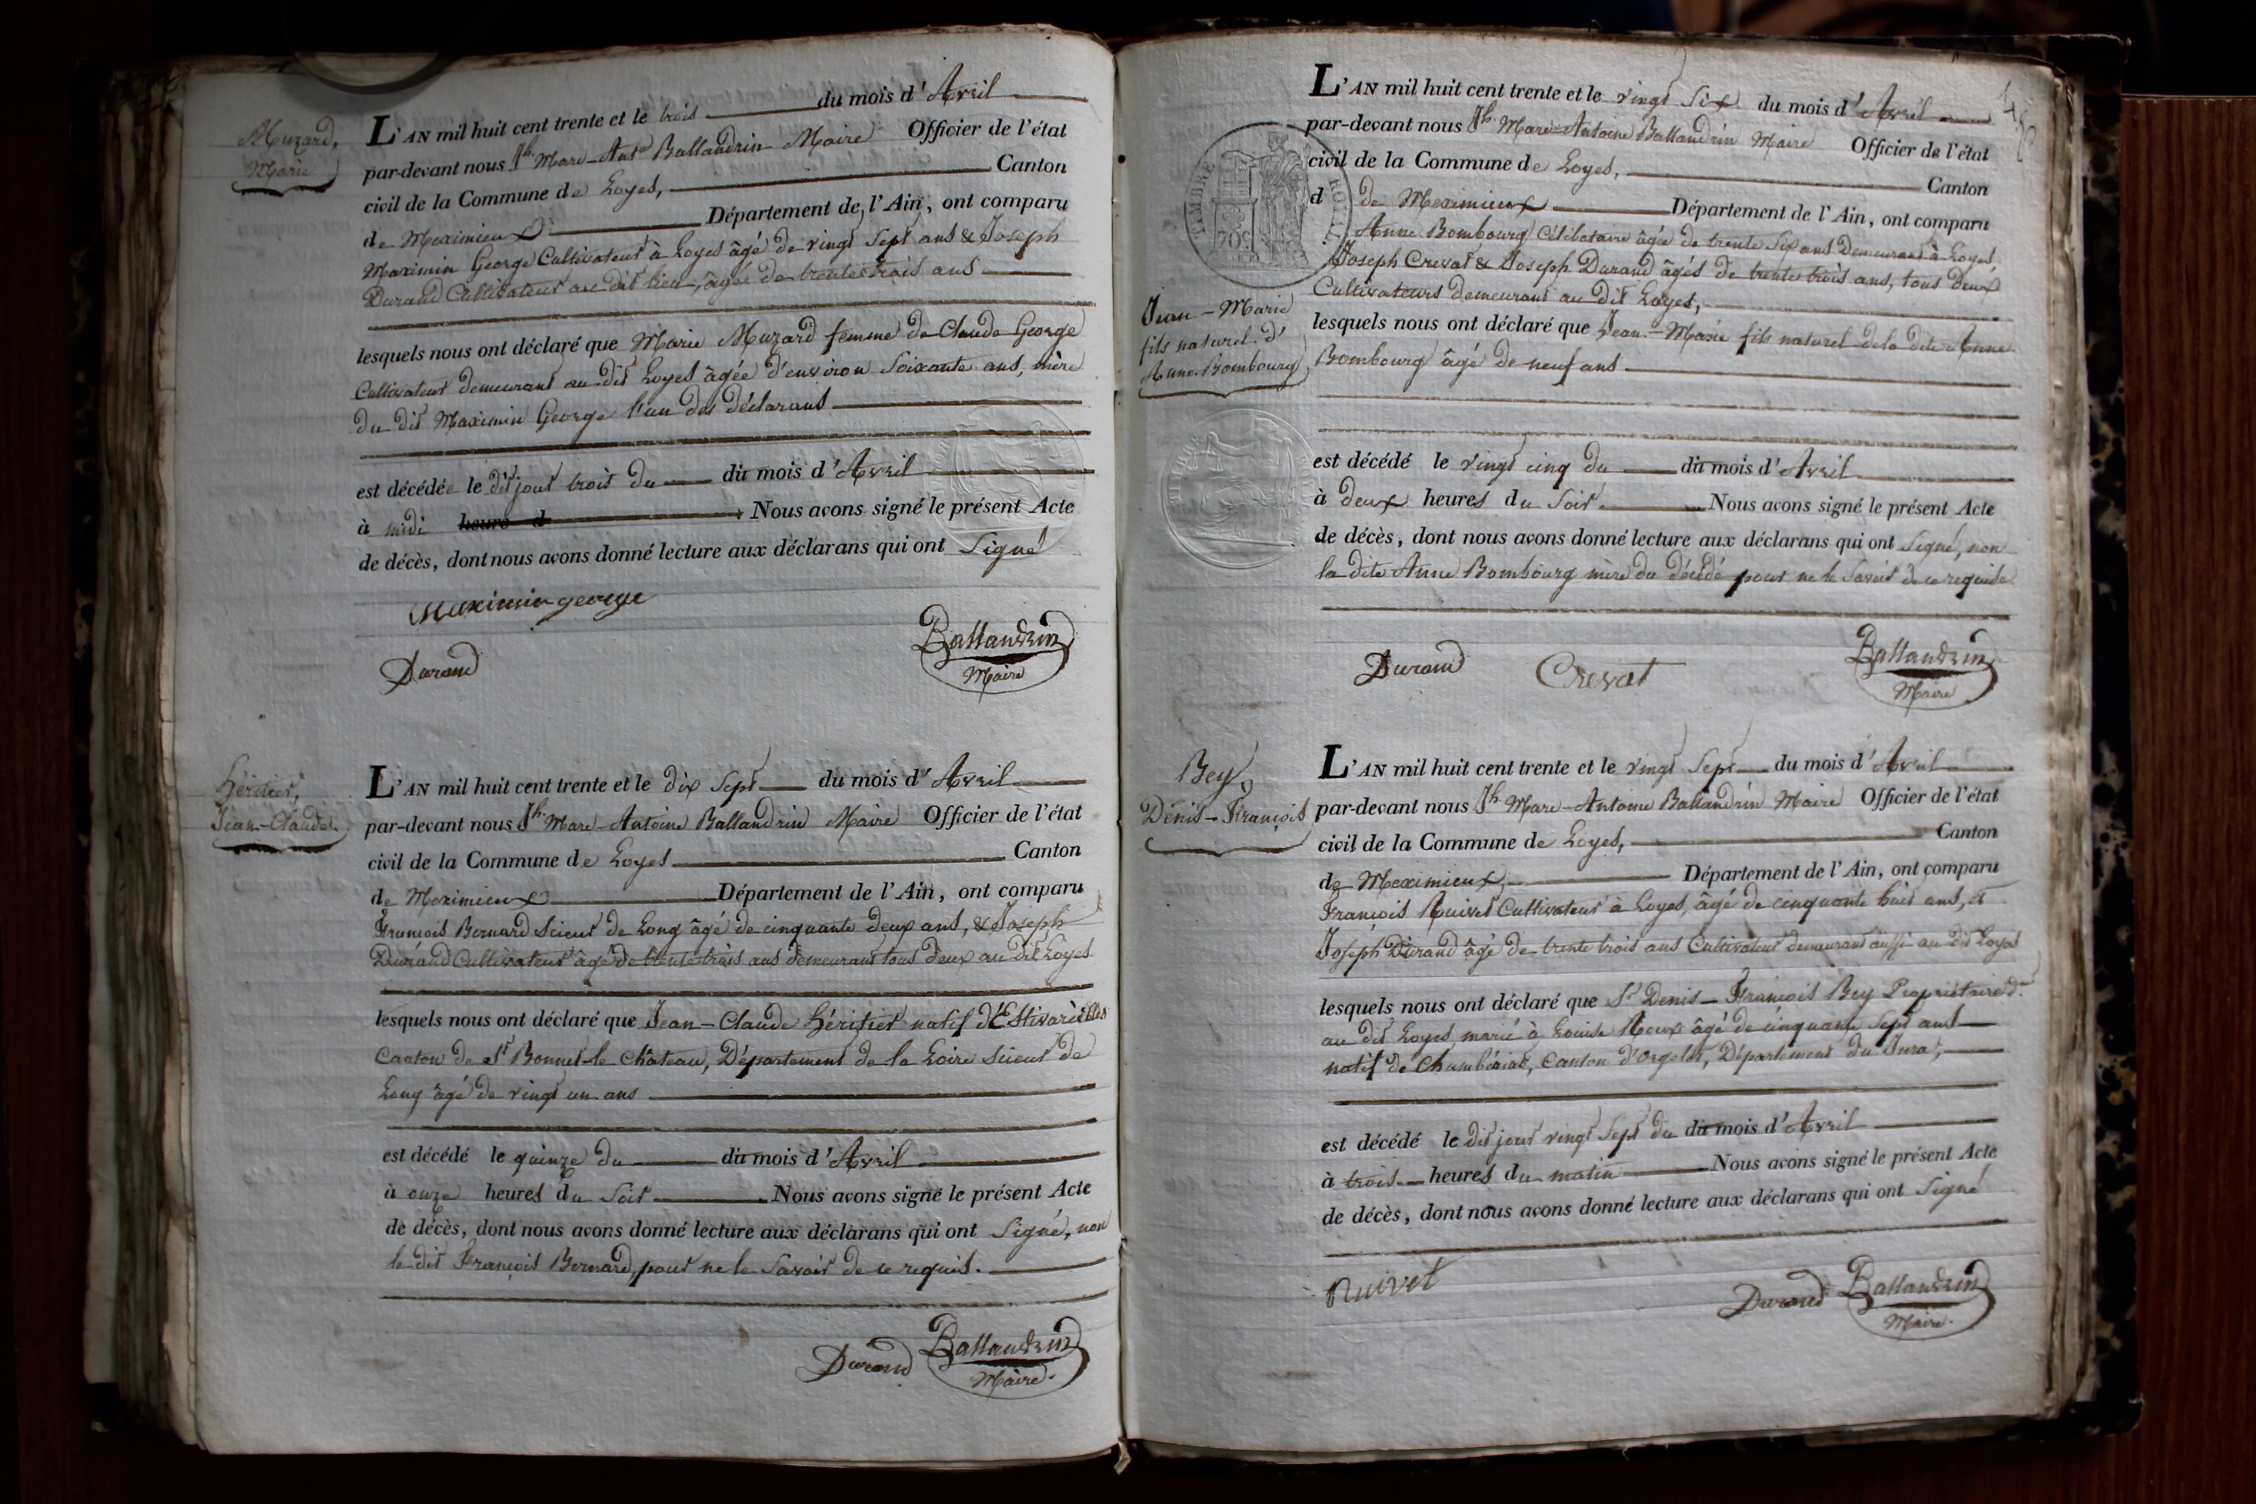 Muzard,
Marie
L'AN mil huit cent trente et le trois du mois d'Avril
par-devant nous Jh. Marc-Ant.e Ballandrin Maire Officier de l'état
civil de la Commune de Loyes, Canton
de Meximieux Département de l'Ain, ont comparu
Maximin George Cultivateur à Loyes âgé de vingt sept ans & Joseph
Durand Cultivateur au dit lieu, âgé de trente trois ans
lesquels nous ont déclaré que Marie Muzard femme de Claude George
Cultivateur demeurant au dit Loyes âgée d'environ Soixante ans, mère
du dit Maximin George l'un des déclarans
est décédée le dit jour trois du du mois d'Avril
à midi heure d Nous avons signé le présent Acte
de décès, dont nous avons donné lecture aux déclarans qui ont Signé
Maximin george
Ballandrin
Maire
Durand
Héritier,
Jean-Claude.
L'AN mil huit cent trente et le dix Sept du mois d'Avril
par-devant nous Jh. Marc-Antoine Ballandrin Maire Officier de l'état
civil de la Commune de Loyes Canton
de Meximieux Département de l'Ain, ont comparu
François Bernard Scieur de Long âgé de cinquante deux ans, & Joseph
Durand Cultivateur âgé de trente trois ans demeurans tous deux au dit Loyes
lesquels nous ont déclaré que Jean-Claude Héritier natif d'Estivareilles
Canton de St Bonnet-le Château, Département de la Loire Scieur de
Long âgé de vingt un ans
est décédé le quinze du du mois d'Avril
à onze heures du Soir Nous avons signé le présent Acte
de décès, dont nous avons donné lecture aux déclarans qui ont Signé, non
le dit François Bernard, pour ne le Savoir de ce requis.
Durand
Ballandrin
Maire.
TIMBRE ROYAL
70c
L'AN mil huit cent trente et le vingt Six du mois d'Avril
par-devant nous Jh. Marc-Antoine Ballandrin Maire Officier de l'état
civil de la Commune de Loyes, Canton
d de Meximieux Département de l'Ain, ont comparu
Anne Bombourg Célibataire âgée de trente Six ans Demeurant à Loyes
Joseph Crevat & Joseph Durand âgés de trente trois ans, tous Deux
Cultivateurs demeurant au dit Loyes,
Jean-Marie
fils naturel d'
Anne Bombourg
lesquels nous ont déclaré que Jean-Marie fils naturel de la dite Anne
Bombourg âgé de neuf ans
est décédé le vingt cinq du du mois d'Avril
à deux heures du Soir. Nous avons signé le présent Acte
de décès, dont nous avons donné lecture aux déclarans qui ont Signé, non
la dite Anne Bombourg mère du décédé pour ne le Savoir de ce requise
Durand
Crevat
Ballandrin
Maire
Bey,
Denis-François
L'AN mil huit cent trente et le vingt Sept du mois d'Avril
par-devant nous Jh. Marc-Antoine Ballandrin Maire Officier de l'état
civil de la Commune de Loyes, Canton
de Meximieux, Département de l'Ain, ont comparu
François Ruivet Cultivateur à Loyes, âgé de cinquante huit ans, et
Joseph Durand âgé de trente trois ans Cultivateur demeurant aussi au dit Loyes
lesquels nous ont déclaré que Sr Denis-François Bey Propriétaire
au dit Loyes, marié à Louise Roux âgé de cinquante Sept ans
natif de Chambériat, Canton d'Orgelet, Département du Jura,
est décédé le dit jour vingt Sept du du mois d'Avril
à trois heures du matin Nous avons signé le présent Acte
de décès, dont nous avons donné lecture aux déclarans qui ont Signé
Ruivet
Durand
Ballandrin
Maire.